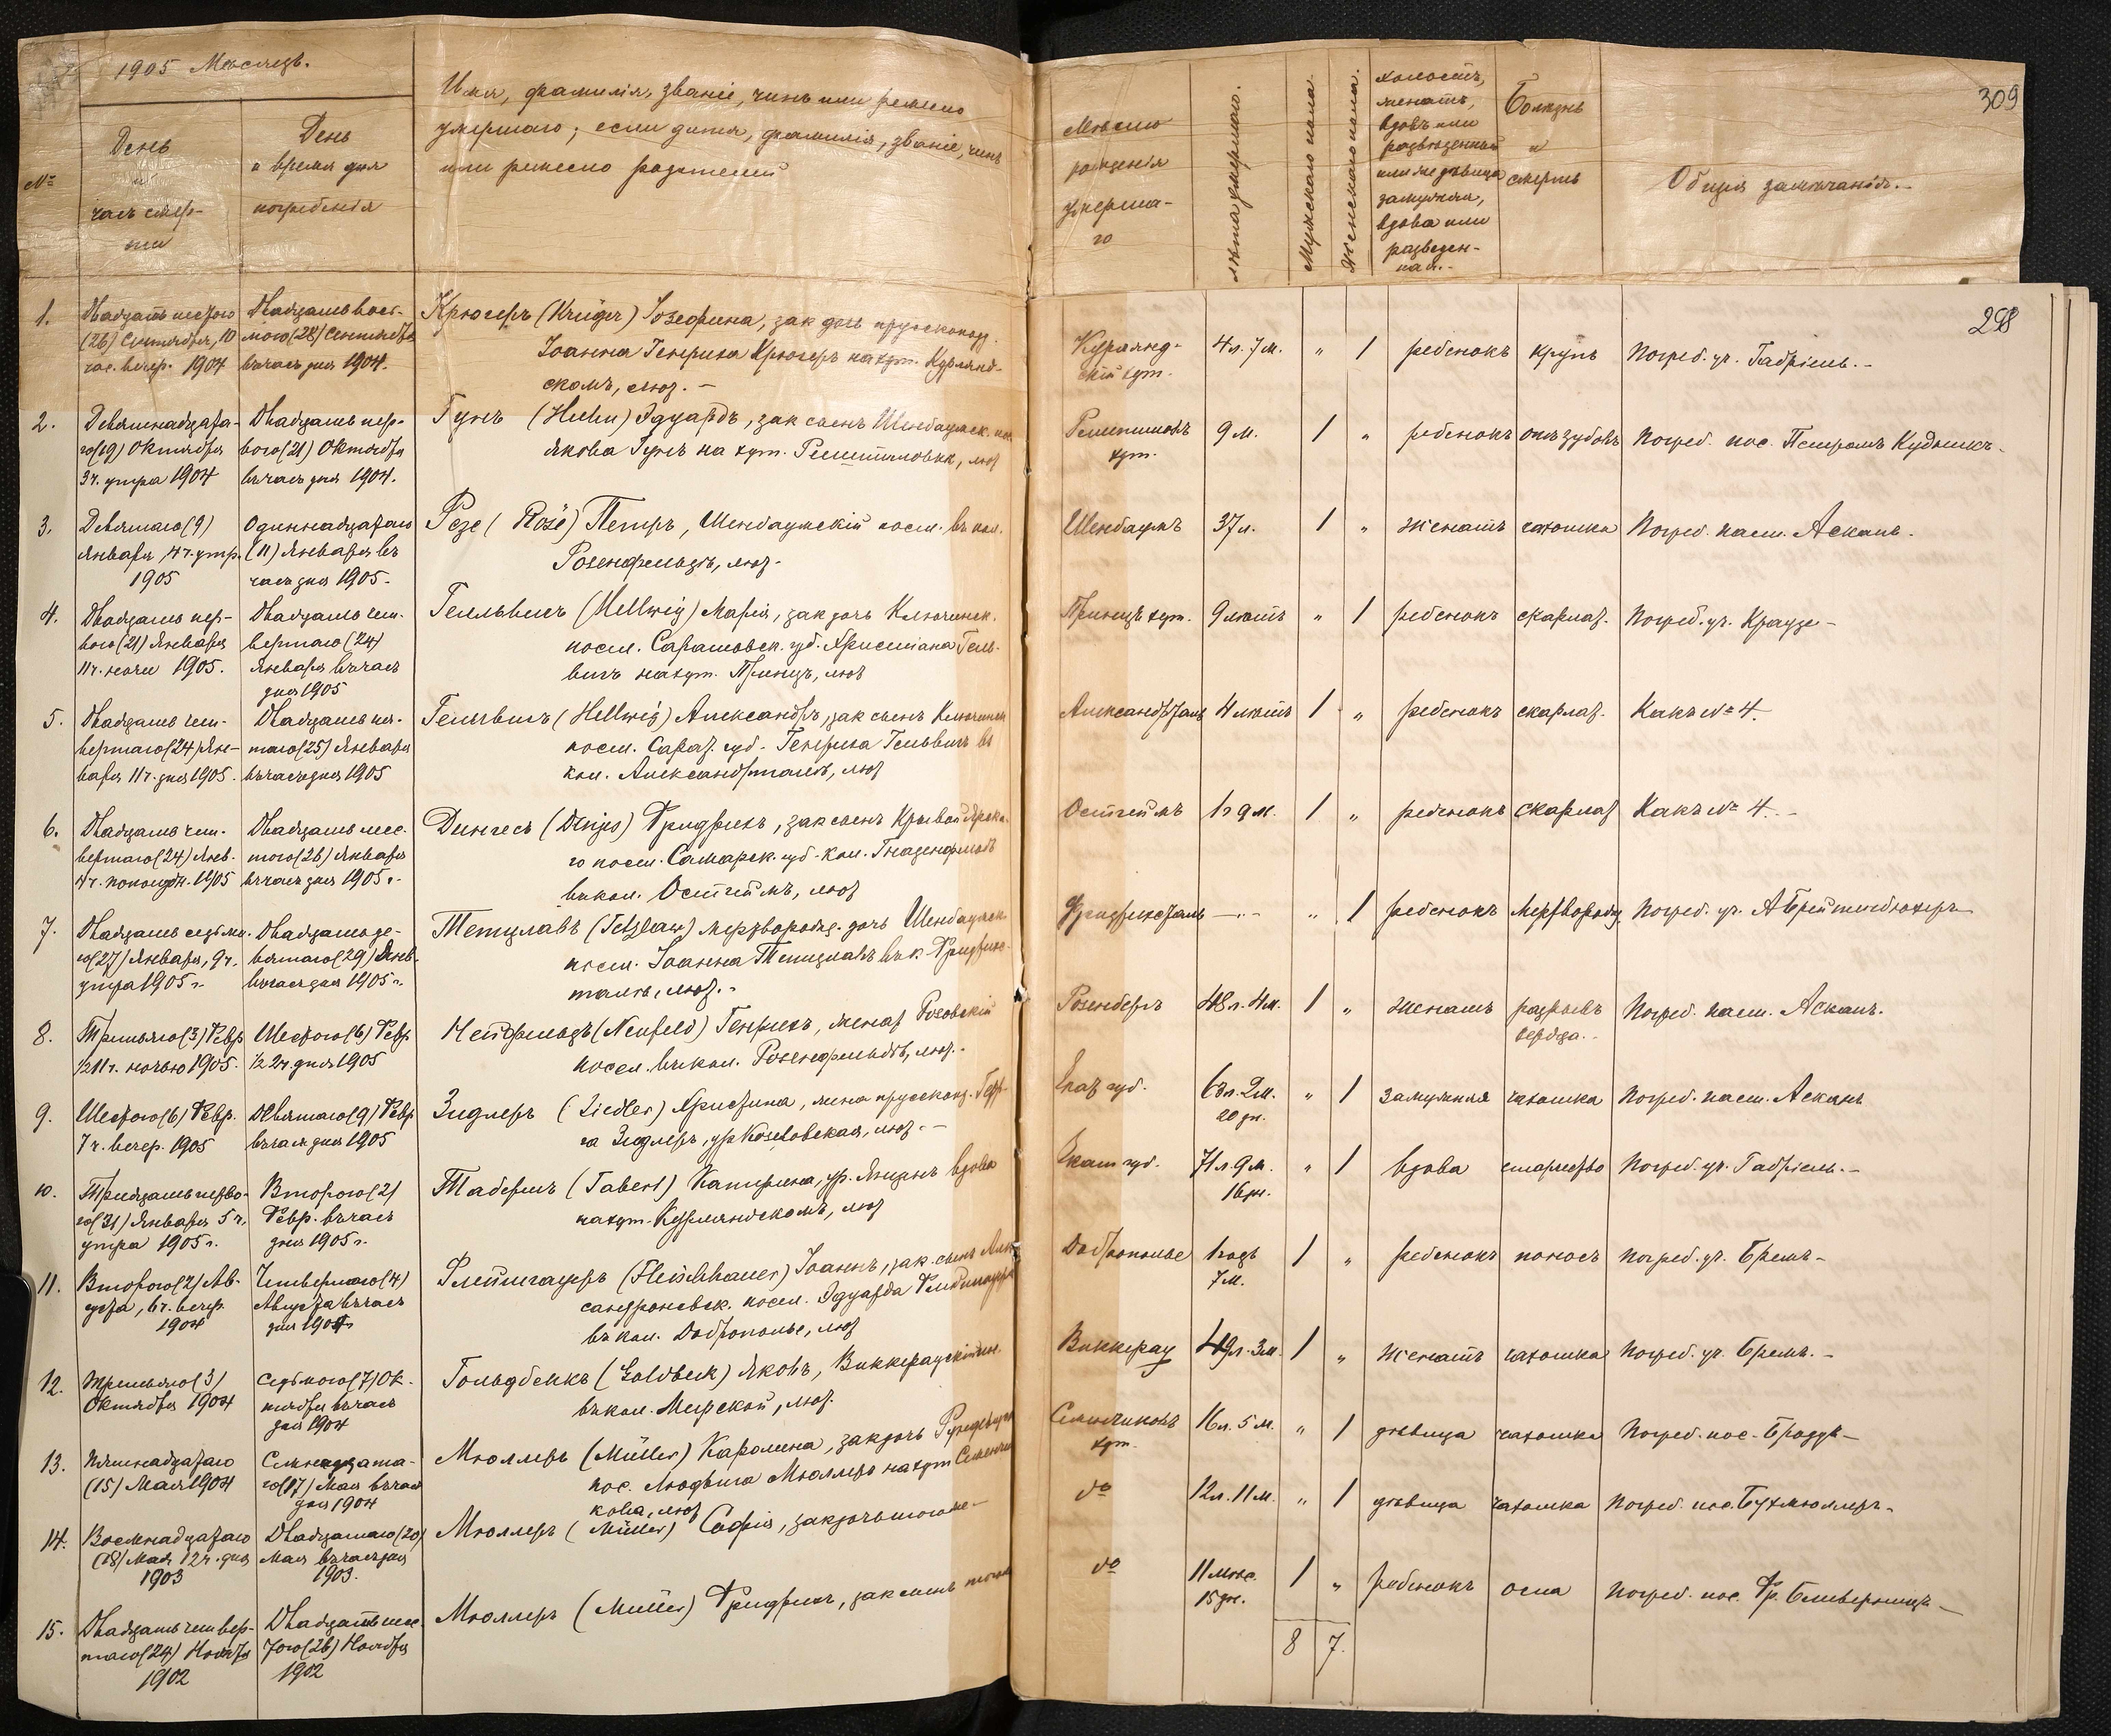 1905 Мѣсяцъ.
№
День
и
часъ смер-
ти
День
и время дня
погребенія
Имя, фамилія, званіе, чинъ или ремесло
умершаго; если дитя, фамилія, званіе, чинъ
или ремесло родителей
1.
Двадцать шестого
(26) Сентября, 10
час. вечер. 1904
Двадцать вось-
мого (28) Сентября
въ часъ дня 1904.
Крюгеръ (Krüger) Іозефина, зак дочь прусскопод.
Іоанна Генриха Крюгеръ на хут. Курлянд-
скомъ, лют. -
2.
Девятнадцата-
го (19) Октября
3 ч. утра 1904
Двадцать пер-
вого (21) Октября
въ часъ дня 1904.
Гунъ (Huhn) Эдуардъ, зак сынъ Шенбаумск. пос
Якова Гунъ на хут. , лют
3.
Девятаго (9)
Января 4 ч. утр.
1905
Одиннадцатаго
(11) Января въ
часъ дня 1905.
Резе (Rosé) Петръ, Шенбаумскій посел. въ кол.
Розенфельдъ, лют.
4.
Двадцать пер-
вого (21) Января
11 ч. ночи 1905.
Двадцать чет-
вертаго (24)
Января въ часъ
дня 1905
Гелльвигъ (Hellwig) Марія, зак дочь Ключинск.
посел. Саратовск. губ. Христіана Гель-
вигъ на хут. Принцъ, лют
5.
Двадцать чет-
вертаго (24) Ян-
варя 11 ч. дня 1905.
Двадцать пя-
таго (25) Января
въ часъ дня 1905
Гельвигъ (Hellwig) Александръ, зак сынъ
посел. Сарат. губ. Генриха Гельвигъ въ
кол. Александрталь, лют
6.
Двадцать чет-
вертаго (24) Янв.
4 ч. пополудн. 1905
Двадцать шес-
того (26) Января
въ часъ дня 1905 г.
Дингесъ (Dinges) Фридрихъ, зак сынъ
го посел. Самарск. губ. кол. Гнаденфельдъ
въ кол. Остгеймъ, лют
7.
Двадцать седьмо-
го (27) Января, 9 ч.
утра 1905 г.
Двадцать де-
вятаго (29) Янв.
въ часъ дня 1905 г.
Тетцлавъ (Tetzlaw) мертворожд. дочь Шенбаумск.
посел. Іоанна Тетцлавъ въ к Фридрихс-
таль, лют.-
8.
Третьяго (3) Февр
½ 11 ч. ночью 1905.
Шестого (6) Февр
½ 2 ч. дня 1905
Нейфельдъ (Neufeld) Генрихъ, женат Розовскій
посел. въ кол. Розенфельдъ, лют.-
9.
Шестого (6) Февр.
7 ч. вечер. 1905
Девятаго (9) Февр
въ часъ дня 1905
Зидлеръ (Ziedler) Христина, жена прусскопод.
га Зидлеръ, , лют. -
10.
Тридцать перво-
го (31) Января 5 ч.
утра 1905 г.
Второго (2)
Февр. въ часъ
дня 1905 г.
Табертъ (Tabert) Катерина, ур. вдова
на хут. Курляндскомъ, лют
11.
Второго (2) Ав-
густа, 6 ч. вечер.
1904
Четвертаго (4)
Августа въ часъ
дня 1904
Флейшгауеръ (Fleischhauer) Іоаннъ, зак. сынъ Алек
сандроневск. посел. Эдуарда Флейшгауеръ
въ кол. Доброполье, лют
12.
Третьяго (3)
Октября 1904
Седьмого (7) Ок-
тября въ часъ
дня 1904
Гольдбеккъ (Goldbeck) Яковъ, Виккерауск
въ кол. Мирской, лют.
13.
Пятнадцатаго
(15) Мая 1904
Семнадцата-
го (17) Мая въ часъ
дня 1904
Мюллеръ (Müller) Каролина, зак дочь
пос. Людвига Мюллеръ на хут Семенчи
кова, лют
14.
Восемнадцатаго
(18) Мая 12 ч. дня
1903
Двадцатаго (20)
Мая въ часъ дня
1903.
Мюллеръ (Müller) Софія, зак дочь того же-
15.
Двадцать четвер-
таго (24) Ноября
1902
Двадцать шес-
того (26) Ноября
1902
Мюллеръ (Müller) Фридрихъ, зак сынъ того
Мѣсто
рожденія
умерша-
го
лѣта умершаго.
Мужского пола.
Женскаго пола.
холостъ,
женатъ,
вдовъ или
разведенный
или же дѣвица
замужняя,
вдова или
разведен-
ная.-
Болѣзнь
и
смерть
Общія замѣчанія.-
309
298
Курлянд-
скій хут.
4 л. 7 м. " 1 ребенокъ крупъ Погреб. уч. Габріель.-
хут.
9 м. 1 " ребенокъ отъ зубовъ Погреб. пос. Петромъ
Шенбаумъ 37 л. 1 " женатъ чахотка Погреб. паст. Асканъ.
Принцъ хут. 9 лѣтъ " 1 ребенокъ скарлат. Погреб. уч. Краузе-
Александрталь 4 лѣтъ 1 " ребенокъ скарлат. Какъ № 4.
Остгеймъ 1 г 9 м. 1 " ребенокъ скарлат Какъ № 4.-
Фридрихсталь -"- " 1 ребенокъ мертворожд Погреб. уч. А
Розенбергъ 48 л. 4 м. 1 " женатъ разрывъ
сердца.
Погреб. паст. Асканъ.
Екат губ. 63 л. 2 м.
20 дн.
" 1 замужняя чахотка Погреб. паст. Асканъ
Екат губ. 71 л. 9 м.
16 дн.
" 1 вдова старчество Погреб. уч. Габріель.-
Доброполье 1 годъ
7 м.
1 " ребенокъ поносъ погреб. уч. Бремъ-
Виккерау 49 л. 3 м. 1 " женатъ чахотка Погреб. уч. Бремъ.-
Семенчиковъ
хут.
16 л. 5 м. " 1 дѣвица чахотка Погреб. пос.
do 12 л. 11 м. " 1 дѣвица чахотка Погреб. пос. Бухмюллеръ-
do 11 мѣс.
15 дн.
1 " ребенокъ оспа погреб. пос. Фр.
8 7.